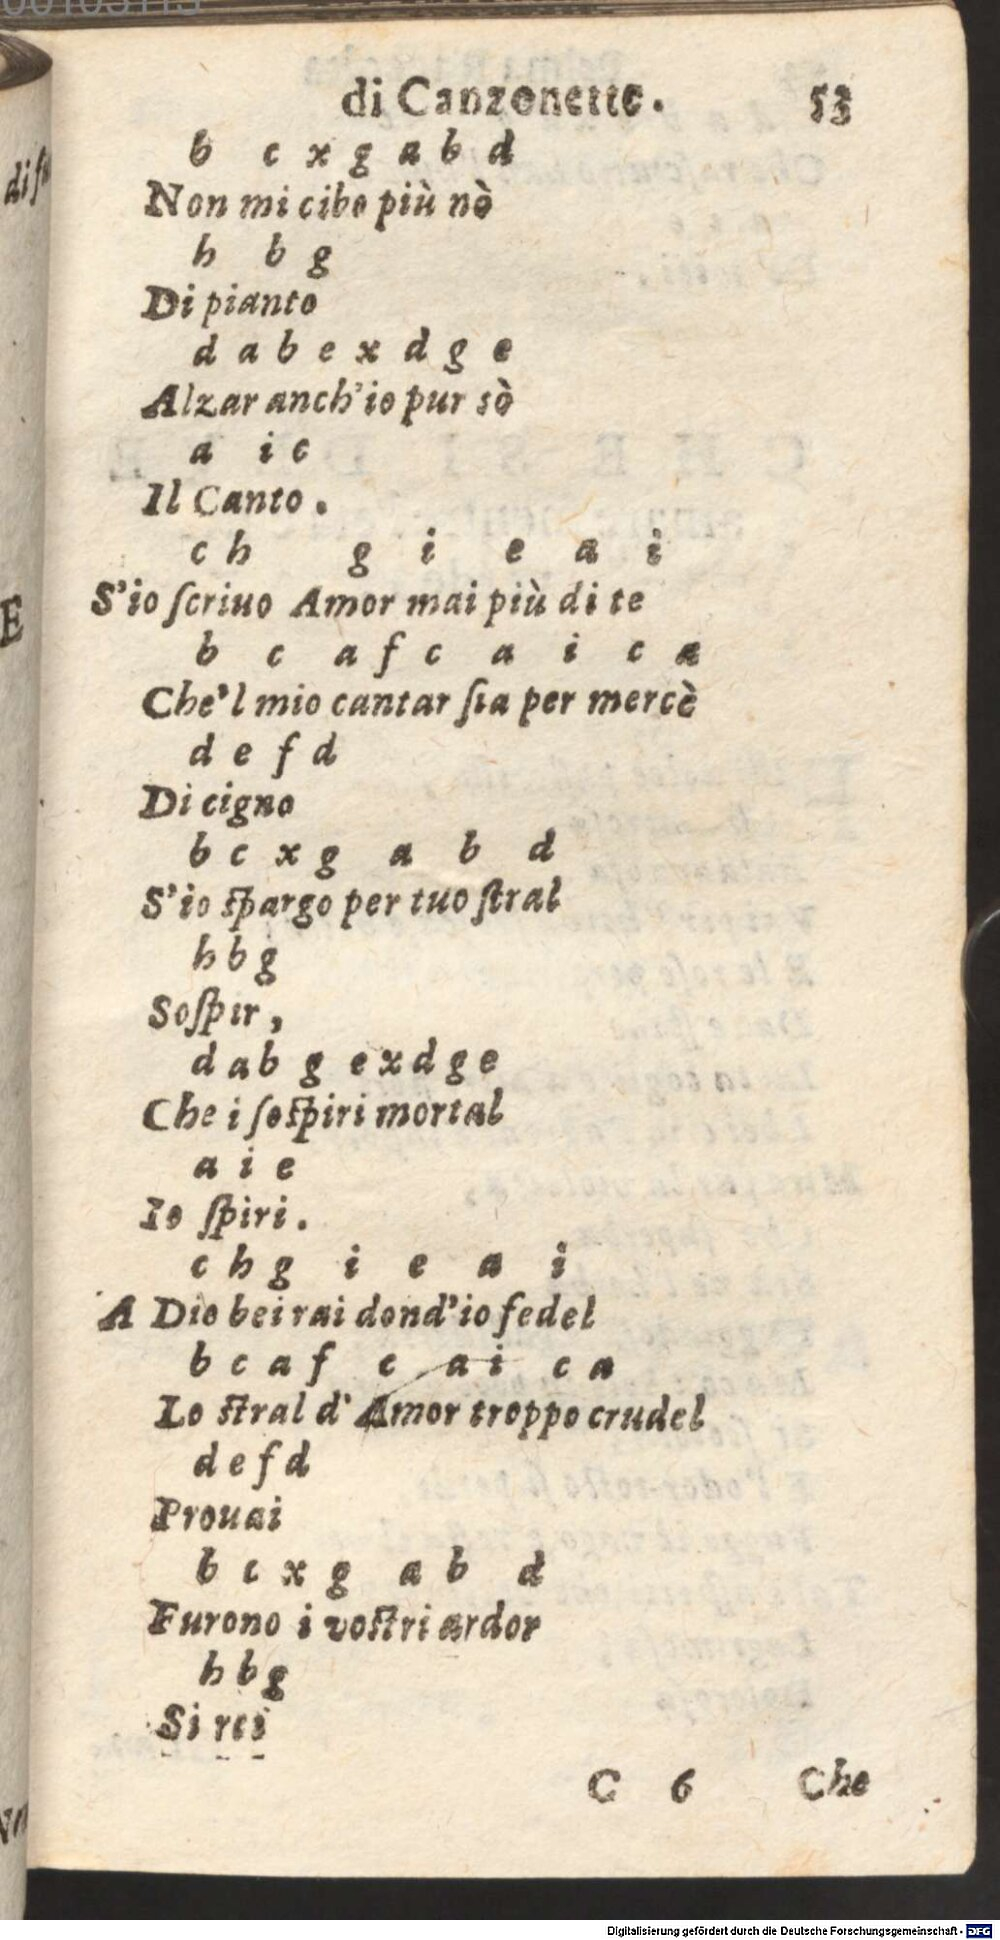 di Canzonette. 53
b c x g a b d
Non mi cibo più nò
h b g
Di pianto
d a b e x d g e
Alzar anch'io pur sò
a i c
Il Canto.
c h g i e a i
S'io ſcriuo Amor mai più di te
b c a f c a i c a
Che'l mio cantar ſia per mercè
d e f d
Di cigno
b c x g a b d
S'io ſpargo per tuo ſtral
h b g
Soſpir,
d a b g e x d g e
Che i ſoſpiri mortal
a i e
Io ſpiri.
c h g i e a i
A Dio bei rai dond'io fedel
b c a f c a i c a
Lo ſtral d'Amor troppo crudel
d e f d
Prouai
b c x g a b d
Furono i voſtri ardor
h b g
Si rei
C 6 Che
Digitalisierung gefördert durch die Deutsche Forschungsgemeinschaft - DFG